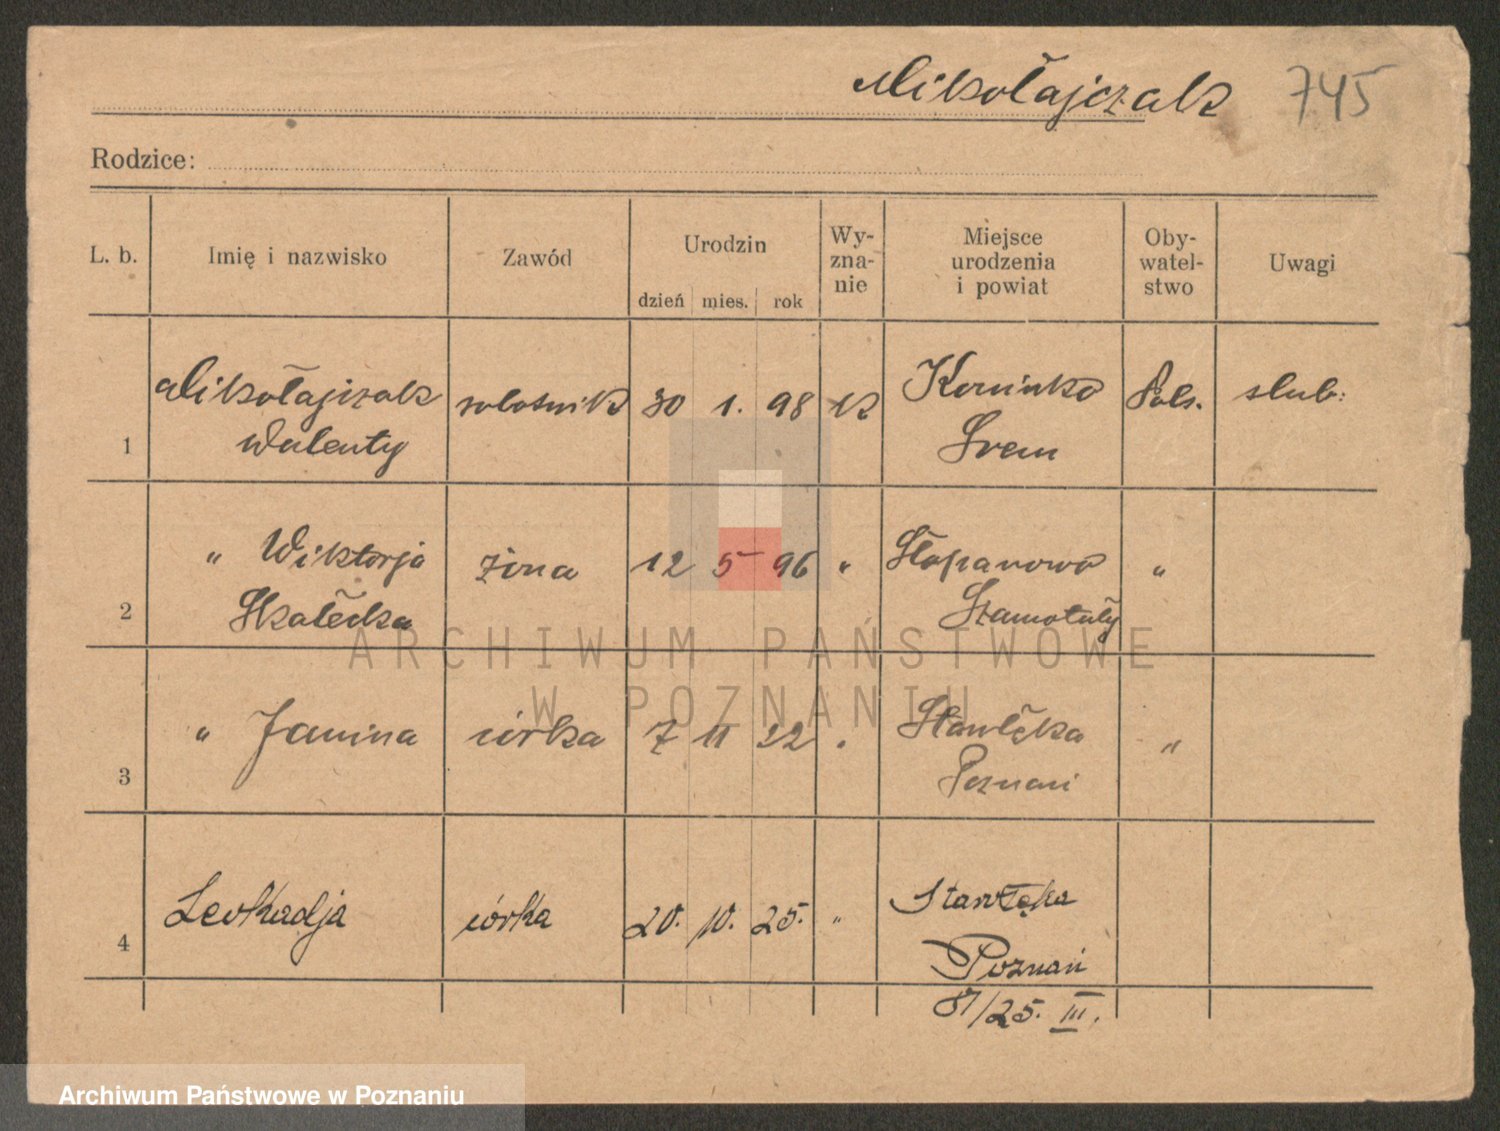 Mikołajczak 745
Rodzice:
L. b. Imię i nazwisko Zawód Urodzin Wy- Miejsce Oby- Uwagi
zna- urodzenia watel-
nie i powiat stwo
dzień mies. rok
Mikołajczak robotnik 30 1. 98 k Kominko Pols. slub:
1 Walenty Srem
" Wiktorja żona 12 5 96 " Stopanowo "
2 Skałecka Szamotuły
" Janina córka 7 11 22 " Stawłęka "
3 Poznań
Leokadja córka 20. 10. 25. " Stawłęka
4 Poznań
87/25. III.
ARCHIWUM PAŃSTWOWE
W POZNANIU
Archiwum Państwowe w Poznaniu